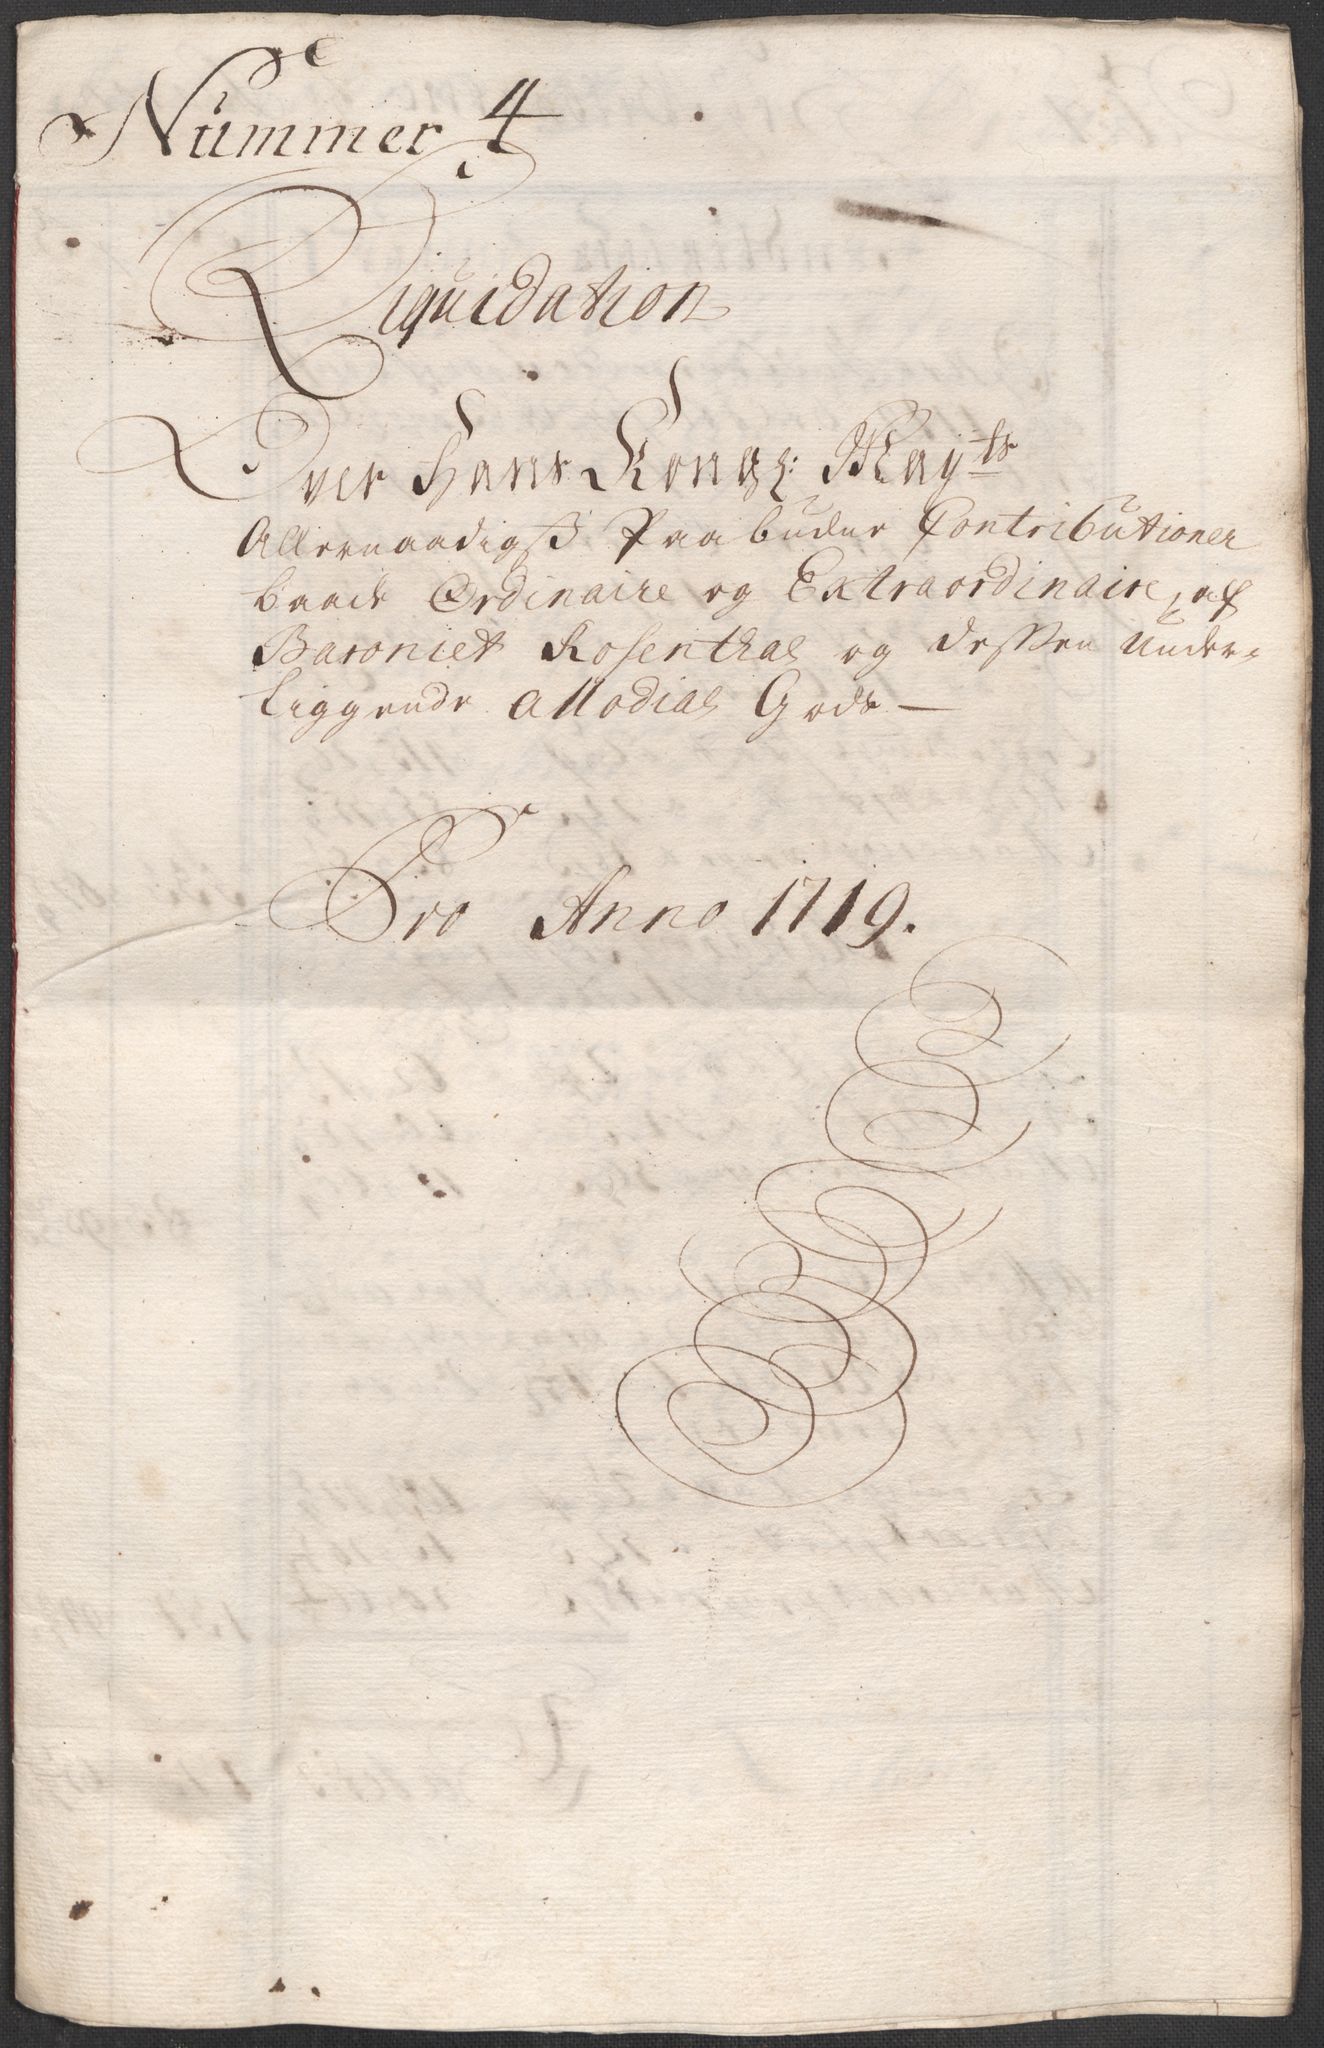 Nummer 4
Liquidation
Over Hans Kongl: Mayts
Allernaadigst Paabudne Contributioner
baade Ordinaire og Extraordinaire, af
Baroniet Rosenthal og dessen Under=
liggende Allodial Gods —
Pro Anno 1719.